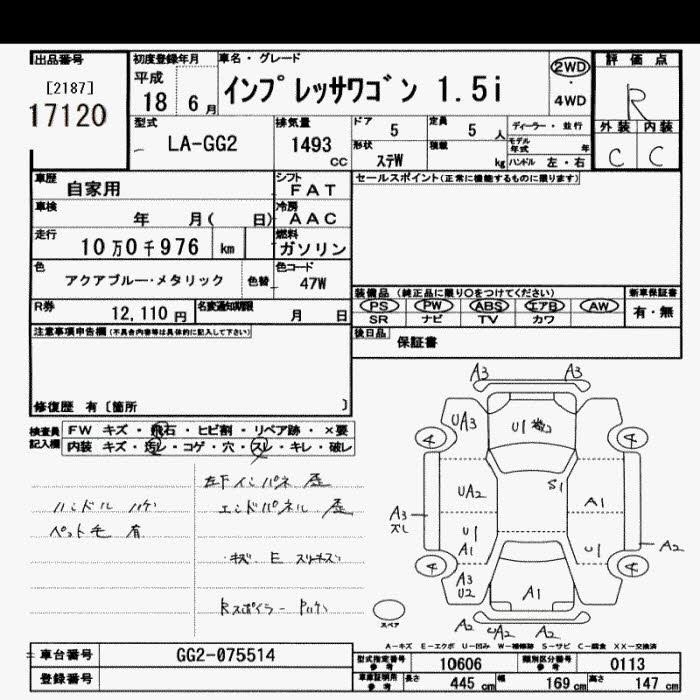 出品番号
[2187]
17120
初度登録年月
平成
18 6月
車名・グレード
インプレッサワゴン 1.5i
2WD
・
4WD
評価点
R
外装 内装
C C
型式
LA-GG2
排気量
1493
CC
ドア
5
定員
5 人
形状
ステW
積載
kg
ディーラー・並行
モデル年式 年
ハンドル 左・右
車歴
自家用
シフト
FAT
セールスポイント(正常に機能するものに限ります)
車検
年 月( 日)
冷房
AAC
走行
10万0千976 km
燃料
ガソリン
色
アクアブルー・メタリック
色替
色コード
47W
装備品 (純正品に限り○をつけてください)
新車保証書
PS PW ABS エアB AW
有・無
SR ナビ TV カワ
R券
12,110 円
名変通知期限
月 日
後日品
保証書
注意事項申告欄(不具合内容等は具体的に記入して下さい)
修復歴 有〔箇所 〕
検査員
記入欄
FW キズ・飛石・ヒビ割・リペア跡・×要
内装 キズ・汚レ・コゲ・穴・スレ・キレ・破レ
左下インパネ
ハンドル
エンドパネル
ペット毛 有
キズ E
Rスポイラー
A3 A3
UA3
U1
4 4
UA2
S1
A1
A3
スレ
U1
A1
U1
A2
4 4
A3
U2
A1
スペア
A2 UA2 A2
A-キズ E-エクボ U-凹み W-補修跡 S-サビ C-腐食 XX-交換済
車台番号
GG2-075514
登録番号
型式指定番号
参考
10606
類別区分番号
参考
0113
車庫証明用
参考
長さ
445 cm
幅
169 cm
高さ
147 cm